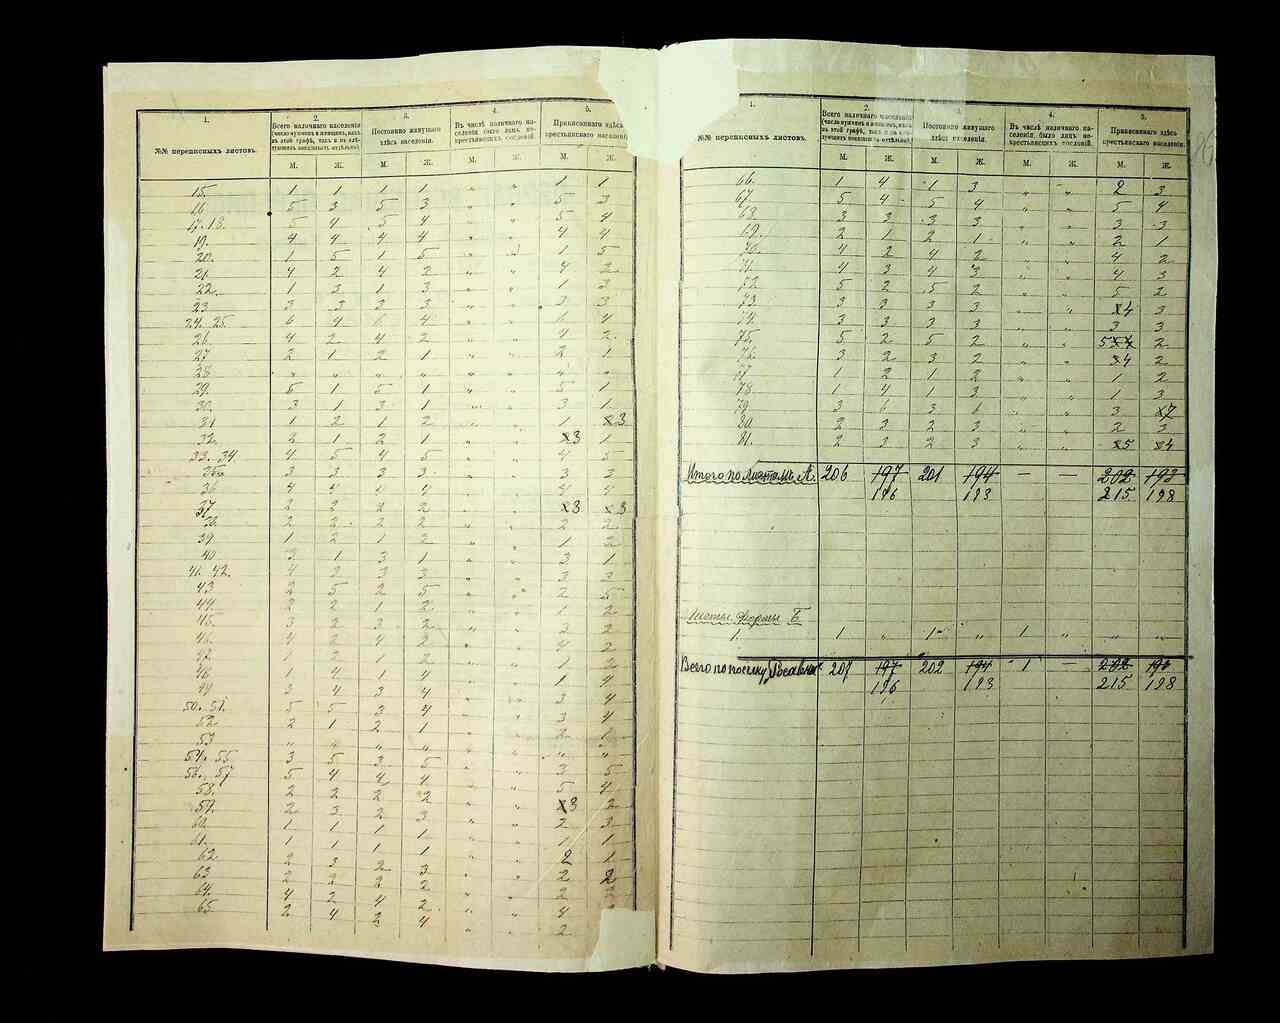 1.
№№ переписныхъ листовъ.
2.
Всего наличнаго населенія
3.
Постоянно живущаго
здѣсь населенія.
4.
Въ числѣ наличнаго на-
селенія было лицъ не-
крестьянскихъ сословій.
5.
Приписаннаго здѣсь
крестьянскаго населенія.
М. Ж. М. Ж. М. Ж. М. Ж.
15. 1 1 1 1 „ „ 1 1
16 5 3 5 3 „ „ 5 3
17. 18. 5 4 5 4 „ „ 5 4
19. 4 4 4 4 „ „ 4 4
20. 1 5 1 5 „ 1 5
21. 4 2 4 2 „ „ 4 2
22. 1 3 1 3 „ „ 1 3
23 3 3 3 3 „ „ 3 3
24. 25. 6 4 6 4 „ „ 6 4
26. 4 2 4 2 „ „ 4 2
27 2 1 2 1 „ „ 2 1
28 „ „ „ „ „ „ „ „
29. 5 1 5 1 „ „ 5 1
30. 3 1 3 1 „ „ 3 1
31 1 2 1 2 „ „ 1 3
32. 2 1 2 1 „ „ 3 1
33. 34 4 5 4 5 „ „ 4 5
35 3 3 3 3 „ „ 3 3
36 4 4 4 4 „ „ 4 4
37 2 2 2 2 „ „ 3 3
38. 2 2 2 2 „ „ 2 2
39 1 2 1 2 „ „ 1 2
40 3 1 3 1 „ „ 3 1
41. 42. 4 2 3 3 „ „ 3 3
43 2 5 2 5 „ „ 2 5
44. 2 2 1 2 „ „ 1 2
45. 3 2 3 2 „ „ 3 2
46. 4 2 4 2 „ „ 4 2
47 1 2 1 2 „ „ 1 2
48. 1 4 1 4 „ „ 1 4
49 3 4 3 4 „ „ 3 4
50. 51. 5 5 3 4 „ „ 3 4
52 2 1 2 1 „ „ 2 1
53 „ „ „ „ „ „ „ „
54. 55 3 5 3 5 „ „ 3 5
56. 57 5 4 4 4 „ „ 5 4
58. 2 2 2 2 „ „ 3 2
59. 2 3 2 3 „ „ 2 3
60. 1 1 1 1 „ „ 1 1
61. 1 1 1 1 „ „ 2 1
62 2 3 2 3 „ „ 2 2
63 2 2 2 2 „ „ 2
64. 4 2 4 2 „ „ 4
65. 2 4 2 4 „ „ 2
1.
№№ переписныхъ листовъ.
2.
Всего наличнаго населенія
3.
Постоянно живущаго
здѣсь населенія.
4.
Въ числѣ наличнаго на-
селенія было лицъ не-
крестьянскихъ сословій.
5.
Приписаннаго здѣсь
крестьянскаго населенія.
М. Ж. М. Ж. М. Ж. М. Ж.
66. 1 4 1 3 „ „ 2 3
67. 5 4 5 4 „ „ 5 4
68. 3 3 3 3 „ „ 3 3
69. 2 1 2 1 „ „ 2 1
70. 4 2 4 2 „ „ 4 2
71. 4 3 4 3 „ „ 4 3
72 5 2 5 2 „ „ 5 2
73 3 3 3 3 „ „ 4 3
74. 3 3 3 3 „ „ 3 3
75. 5 2 5 2 „ „ 5 4 2
76. 3 2 3 2 „ „ 4 2
77 1 2 1 2 „ „ 1 2
78. 1 4 1 3 „ „ 1 3
79. 3 6 3 „ „ 3 7
80. 2 3 2 3 „ „ 2 3
81. 2 3 2 3 „ „ 5 4
Итого по листамъ А. 206 197 201 194 — — 202 193
196 193 215 198
Листы формы Б
1. 1 „ 1 „ 1 „ „ „
Всего по поселку 207 197 202 194 1 — 202 193
196 193 215 198